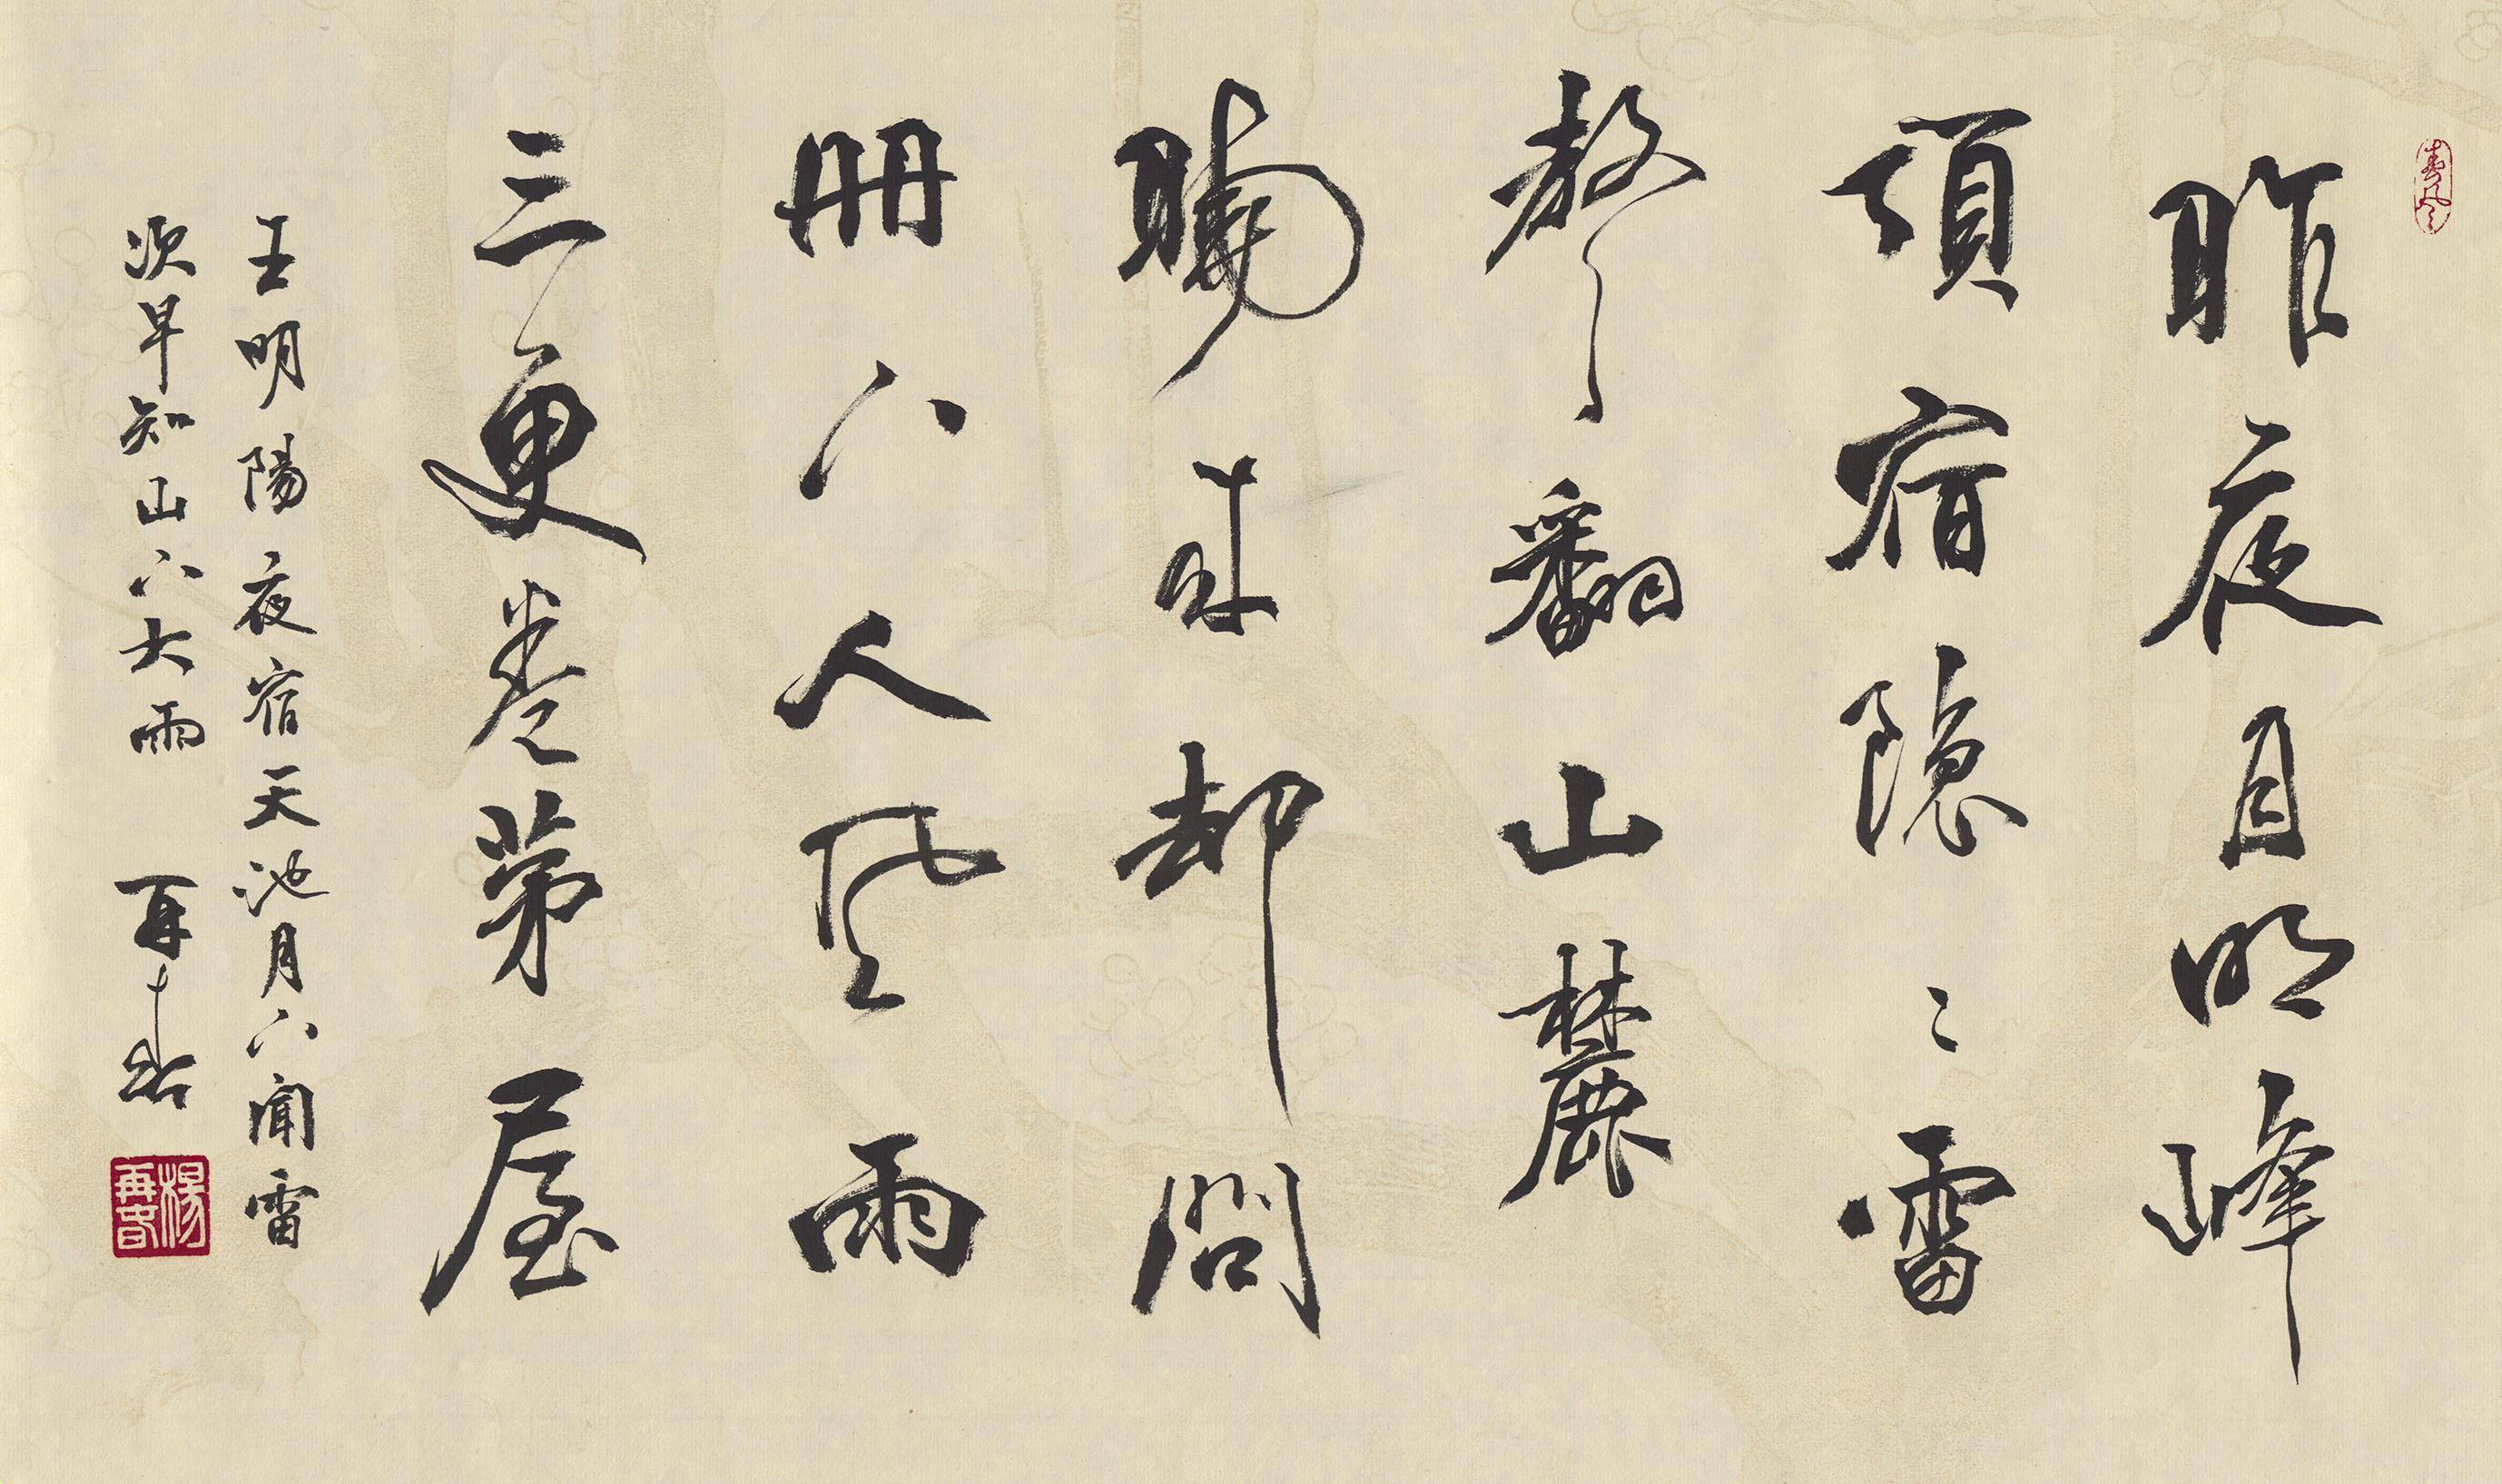 春風
昨夜月明峰
頂宿隐〻雷
聲翻山麓
曉来却問
冊下人風雨
三更卷茅屋
王明陽夜宿天池月下聞雷
次早知山下大雨 再春
楊再春